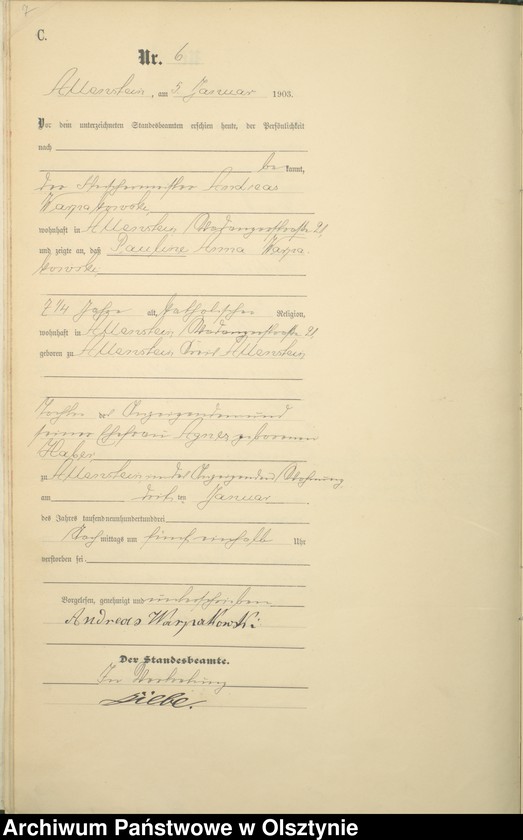 7
C.
Nr. 6
Allenstein, am 5. Januar 1903.
Vor dem unterzeichneten Standesbeamten erschien heute, der Persönlichkeit
nach
be kannt,
der Tischlermeister Andreas
Warpakowski,
wohnhaft in Allenstein, Wadangerstraße 21,
und zeigte an, daß Pauline Anna Warpa-
kowski,
7 1/4 Jahre alt, katholischer Religion,
wohnhaft in Allenstein, Wadangerstraße 21,
geboren zu Allenstein Kreis Allenstein,
Tochter des Anzeigenden und
seiner Ehefrau Agnes geborenen
zu Allenstein in des Anzeigenden Wohnung
am dritten Januar
des Jahres tausendneunhundertunddrei
Nachmittags um fünf einhalb Uhr
verstorben sei.
Vorgelesen, genehmigt und unterschrieben
Andreas Warpakowski
Der Standesbeamte.
In Vertretung
Archiwum Państwowe w Olsztynie